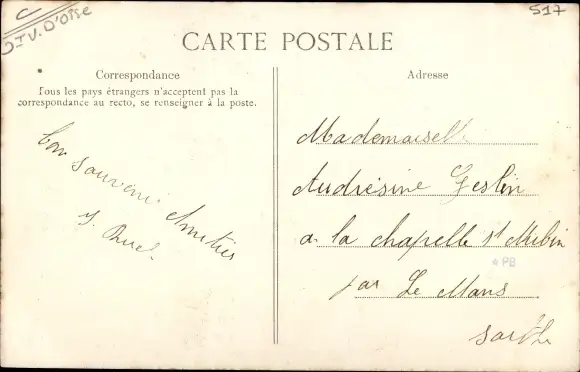 C
St V. D'Oise
517
CARTE POSTALE
Correspondance
Tous les pays étrangers n'acceptent pas la
correspondance au recto, se renseigner à la poste.
Bon souvenir Amitiés
Adresse
Mademoiselle
Andrésine Geslin
a la chapelle st Aubin
par Le Mans
Sarthe
PB